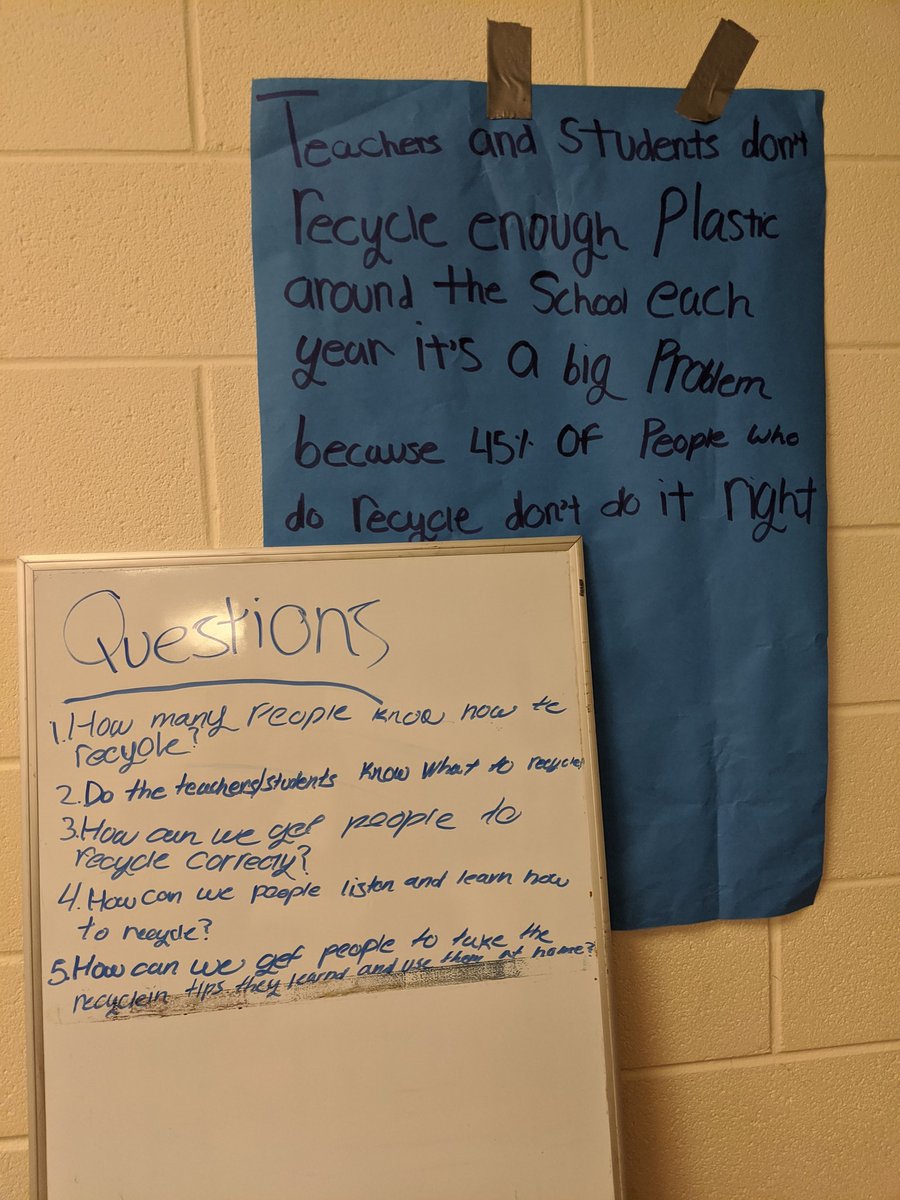 Teachers and Students don't
recycle enough Plastic
around the School each
year it's a big Problem
because 45% OF People who
do recycle don't do it right
Questions
1. How many People know how to
recycle?
2. Do the teachers/students know what to recycle
3. How can we get people to
recycle correcty?
4. How can we people liston and learn how
to recycle?
5. How can we get people to take the
recyclein tips they learnd and use them at home?